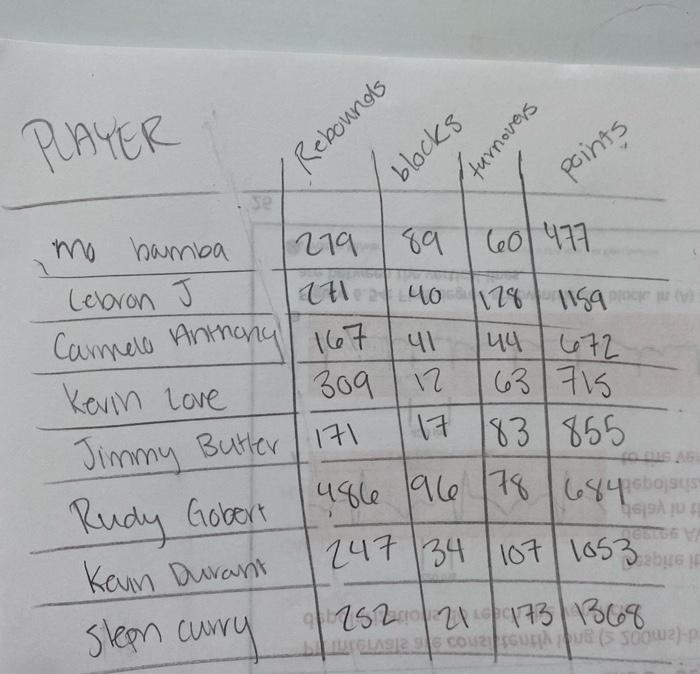 PLAYER Rebounds blocks turnovers points
Mo bamba 279 89 60 477
Lebron J 271 40 128 1159
Carmelo Anthony 167 41 44 672
Kevin Love 309 12 63 715
Jimmy Butler 171 17 83 855
Rudy Gobert 486 96 78 684
Kevin Durant 247 34 107 1053
Steph curry 252 21 173 1368